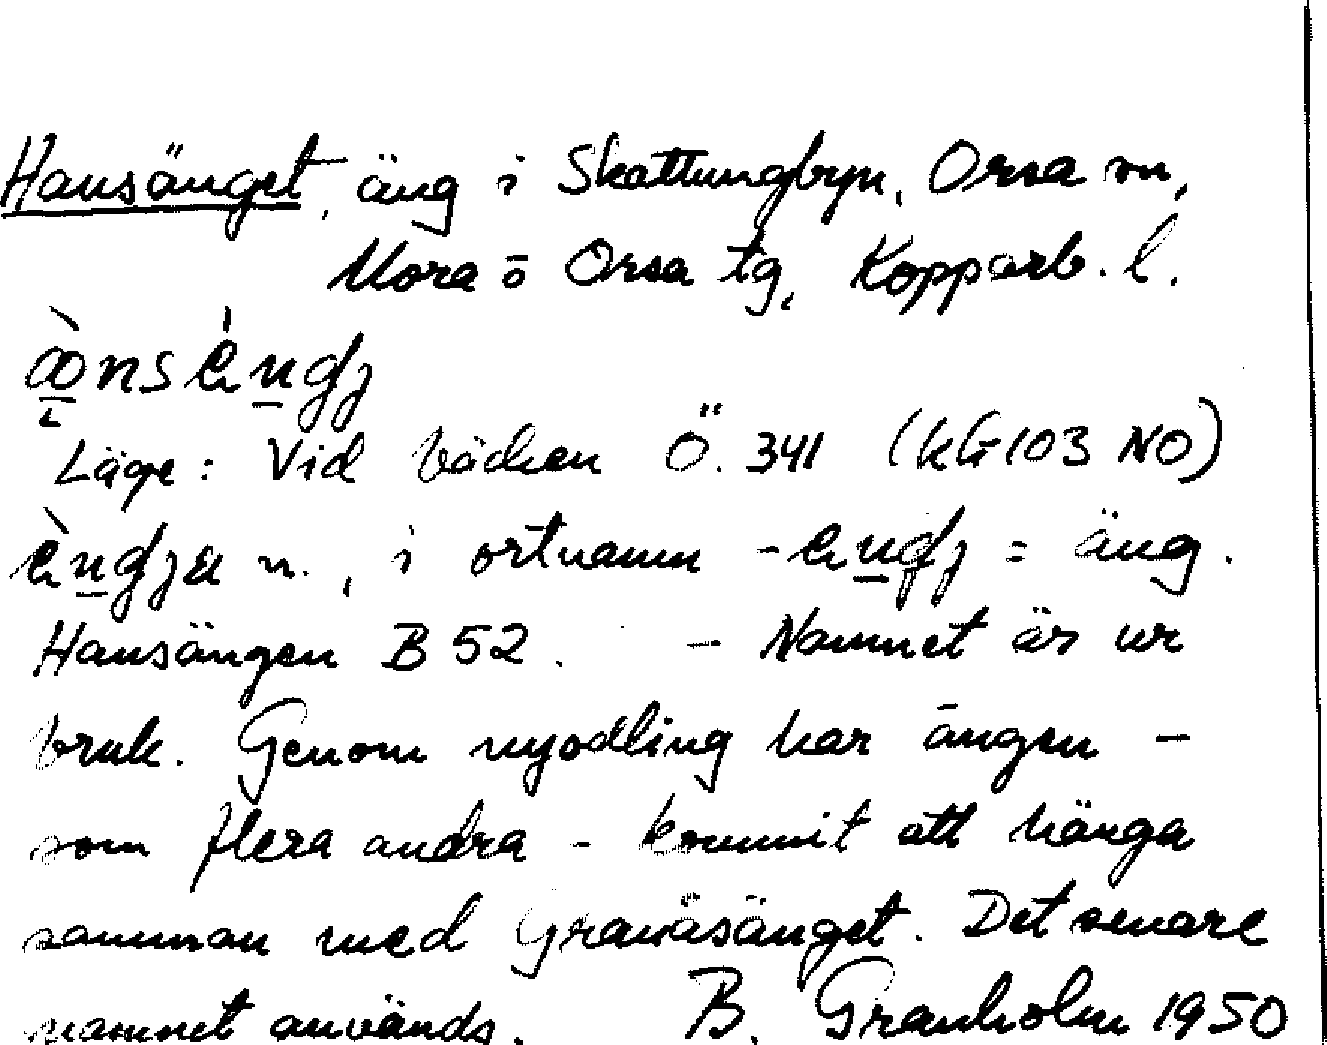 Hansänget, äng i Skattungbyn, Orsa sn,
Mora o Orsa tg, Kopparb. l.
Läge: Vid bäcken Ö. 341 (KG103 NO)
n., i ortnamn = äng.
Hansängen B 52. - Namnet är ur
bruk. Genom nyodling har ängen -
som flera andra - kommit att hänga
samman med Granäsänget. Det senare
namnet används. B. Granholm 1950